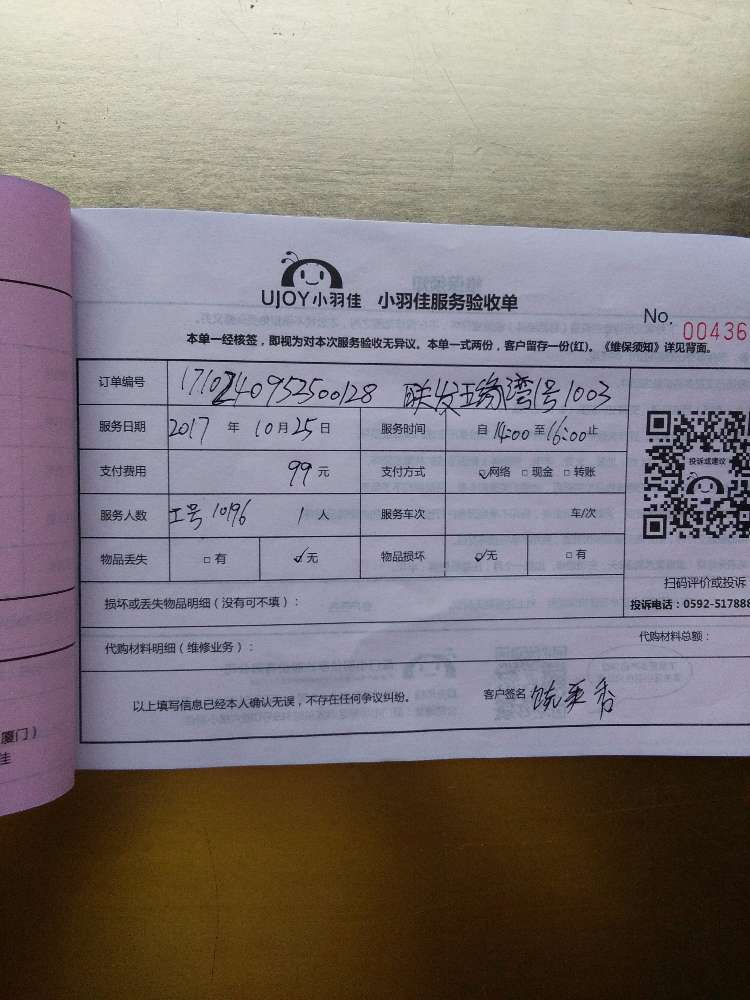 UJOY小羽佳 小羽佳服务验收单
No. 00436
本单一经核签，即视为对本次服务验收无异议。本单一式两份，客户留存一份(红)。《维保须知》详见背面。
订单编号 1710240952500128 联发五缘湾1号1003
服务日期 2017 年 10 月 25 日 服务时间 自 14:00 至 16:00 止
支付费用 99 元 支付方式 ☑网络 □现金 □转账
服务人数 工号 10196 1 人 服务车次 车/次
物品丢失 □有 ☑无 物品损坏 ☑无 □有
投诉或建议
扫码评价或投诉
投诉电话：0592-517888
损坏或丢失物品明细（没有可不填）：
代购材料明细（维修业务）： 代购材料总额：
以上填写信息已经本人确认无误，不存在任何争议纠纷。 客户签名
厦门）
佳